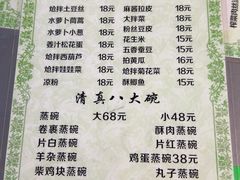 炝拌土豆丝 18元
水萝卜蘸酱 18元
水萝卜 18元
姜汁松花蛋 18元
炝拌西葫芦 18元
炝拌娃娃菜 18元
凉粉 18元
麻酱拉皮 18元
大拌菜 18元
粉丝豆皮 18元
花生米 15元
五香蚕豆 15元
拍黄瓜 15元
炝拌菊花菜 18元
酥鲫鱼 15元
清真八大碗
蒸碗 大68元 小48元
卷裹蒸碗 酥肉蒸碗
片白蒸碗 片红蒸碗
羊杂蒸碗 鸡蛋蒸碗38元
柴鸡块蒸碗 丸子蒸碗